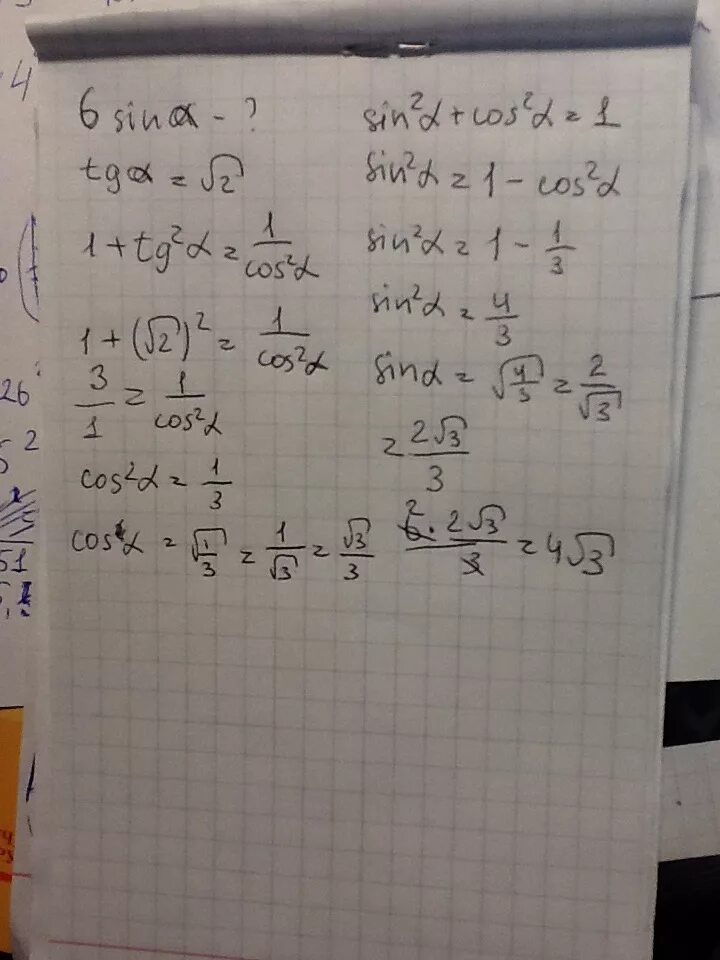 6 sinα - ?
tgα = √2
1 + tg²α = 1/cos²α
1 + (√2)² = 1/cos²α
3/1 = 1/cos²α
cos²α = 1/3
cosα = √(1/3) = 1/√3 = √3/3
sin²α + cos²α = 1
sin²α = 1 - cos²α
sin²α = 1 - 1/3
sin²α = 4/3
sinα = √(4/3) = 2/√3
= 2√3/3
6 · 2√3/3 = 4√3
2
4
26
5 2
51